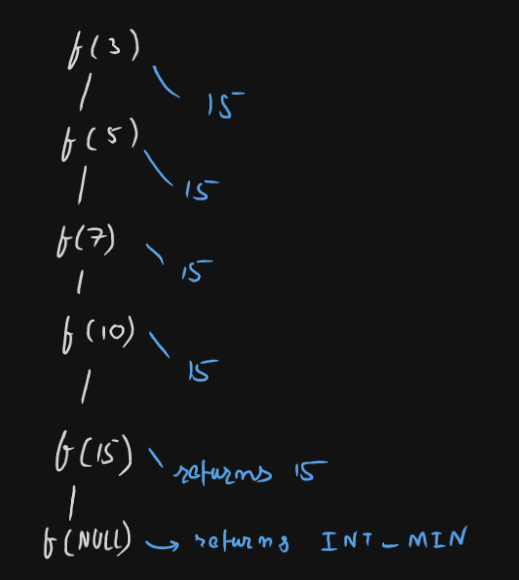 f(3)
15
f(5)
15
f(7)
15
f(10)
15
f(15) returns 15
f(NULL) → returns INT_MIN